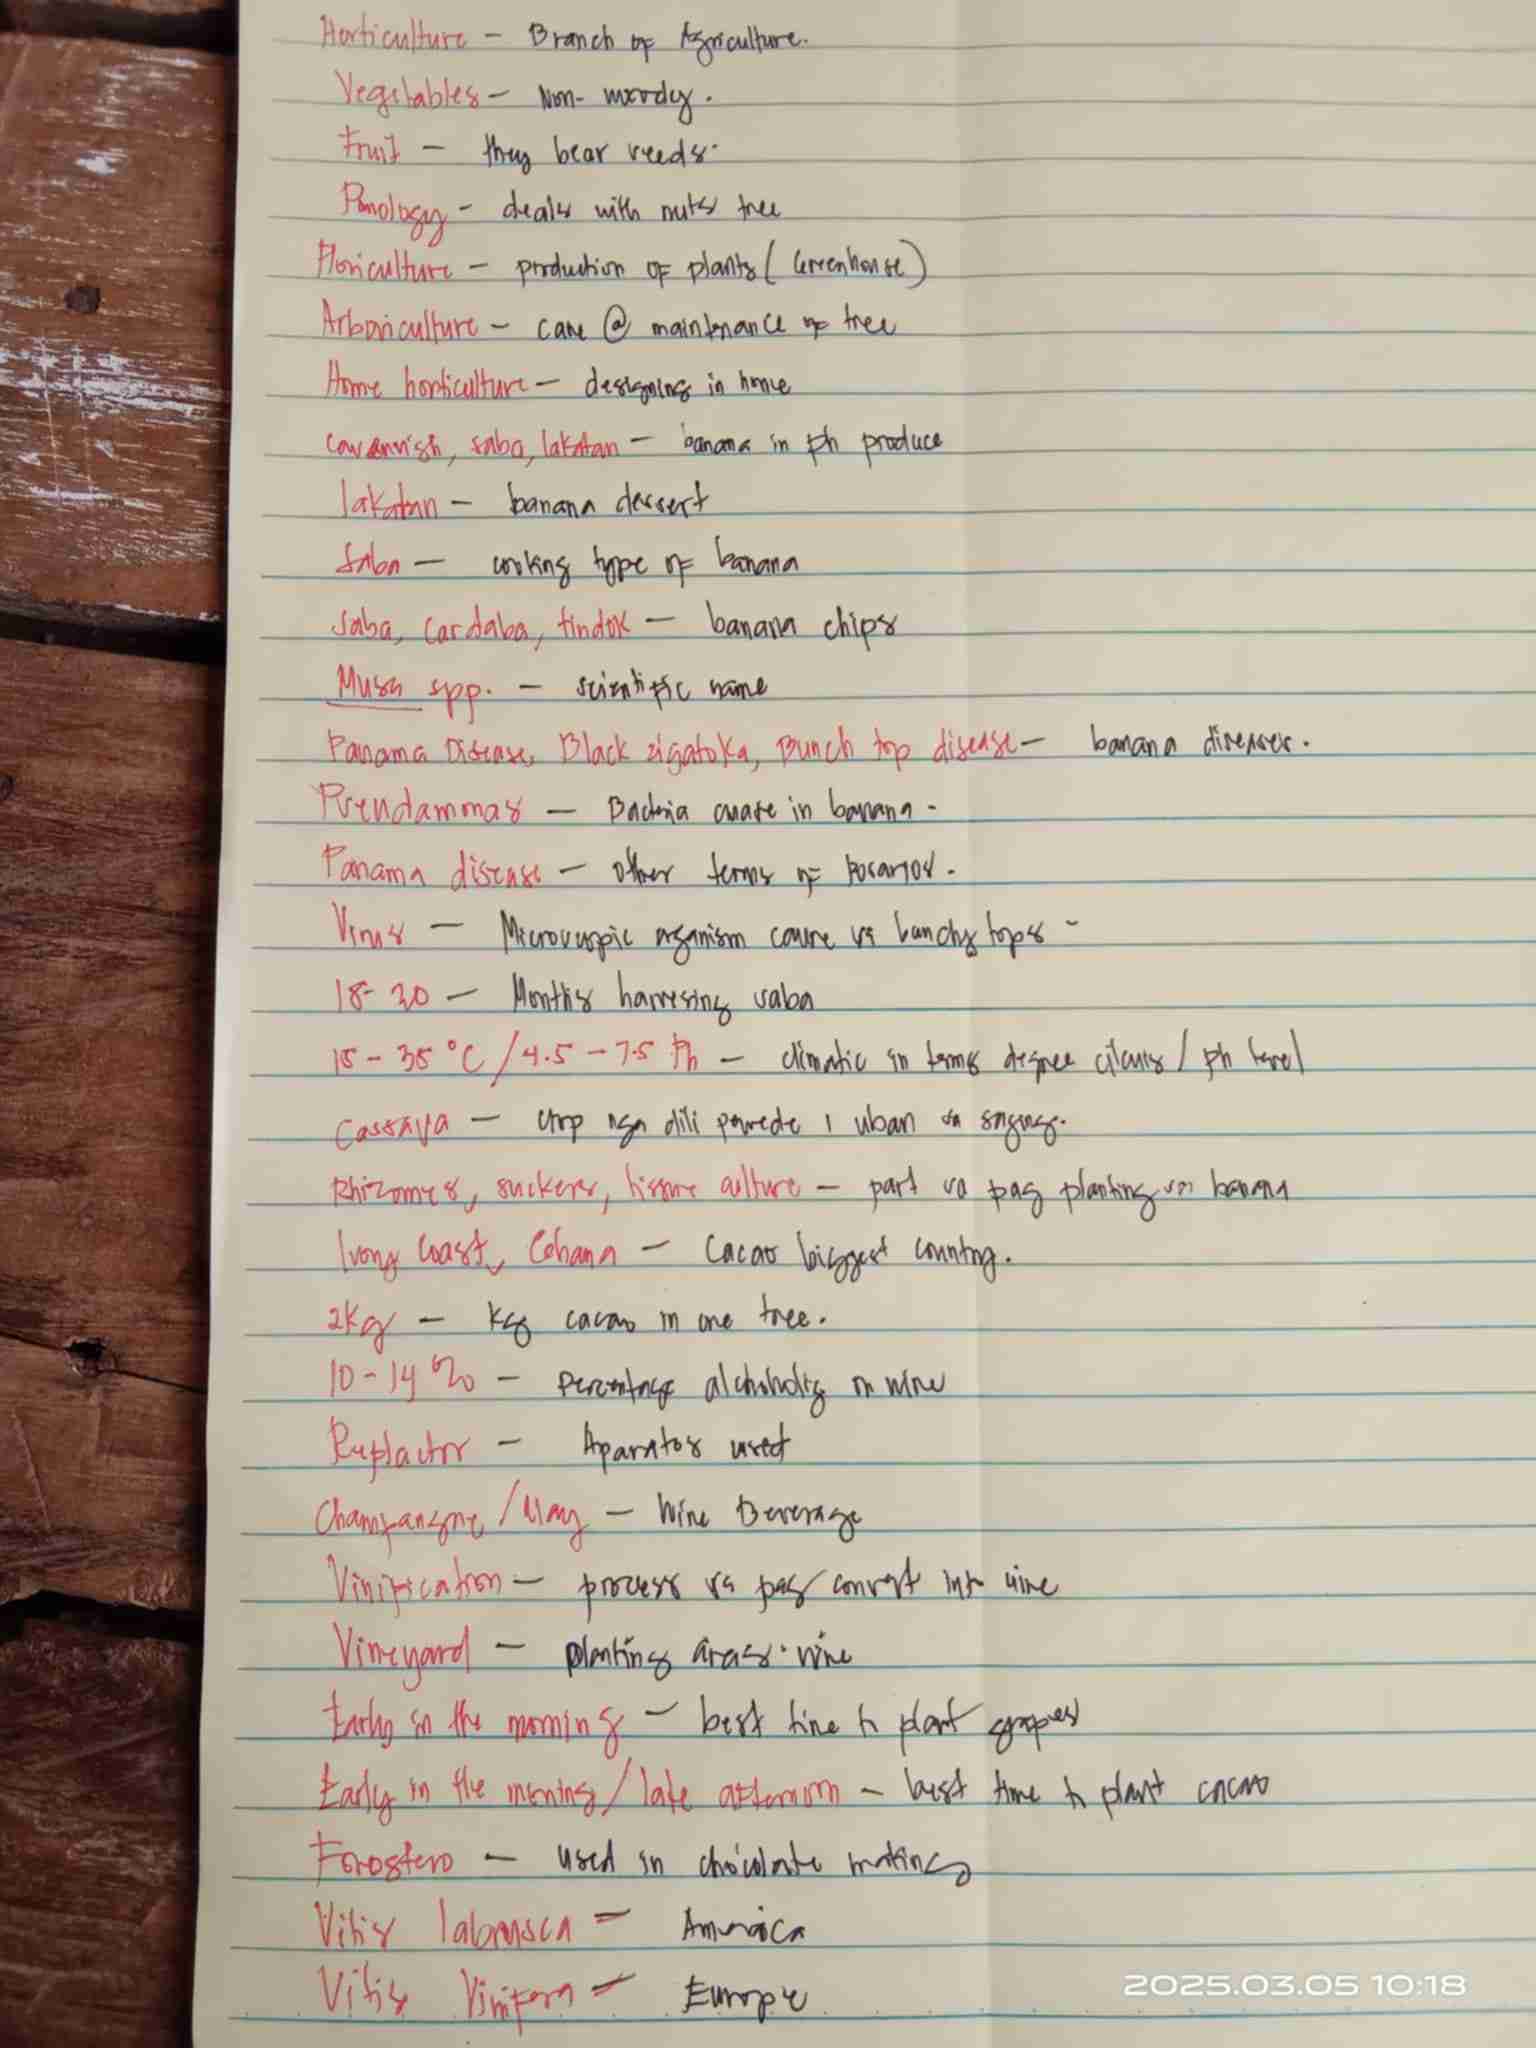 Horticulture - Branch of Agriculture.
Vegetables - Non- woody.
Fruit - they bear seeds.
Pomology - deals with nuts tree
Floriculture - production of plants (Greenhouse)
Arboriculture - care @ maintenance of tree
Home horticulture - designing in home
cavannish, saba, lakatan - banana in ph produce
lakatan - banana dessert
Saba - cooking type of banana
Saba, Cardaba, tindok - banana chips
Musa spp. - scientific name
Panama Disease, Black zigatoka, Bunch top disease - banana diseases.
Pseudammas - Bacteria cause in banana.
Panama disease - other terms of
Virus - Microscopic organism cause sa bunchy tops
18-20 - Months harvesing saba
15 - 35 °C / 4.5 - 7.5 Ph - climatic in terms degree / ph level
Cassava - crop nga dili pwede i uban sa saging.
Rhizomes, suckers, tissue culture - part sa pag planting sa banana
Ivory Coast, Gahana - Cacao biggest country.
2kg - kg cacao in one tree.
10-14 % - percentage in wine
- Aparatos used
Champangne / May - Wine Beverage
Vinification - process sa pag convert into wine
Vineyard - planting areas wine
Early in the morning - best time to plant grapes
Early in the morning / late afternoon - best time to plant cacao
Forostero - used in chocolate making
Vitis labrusca - America
Vitis Vinifera - Europe
2025.03.05 10:18